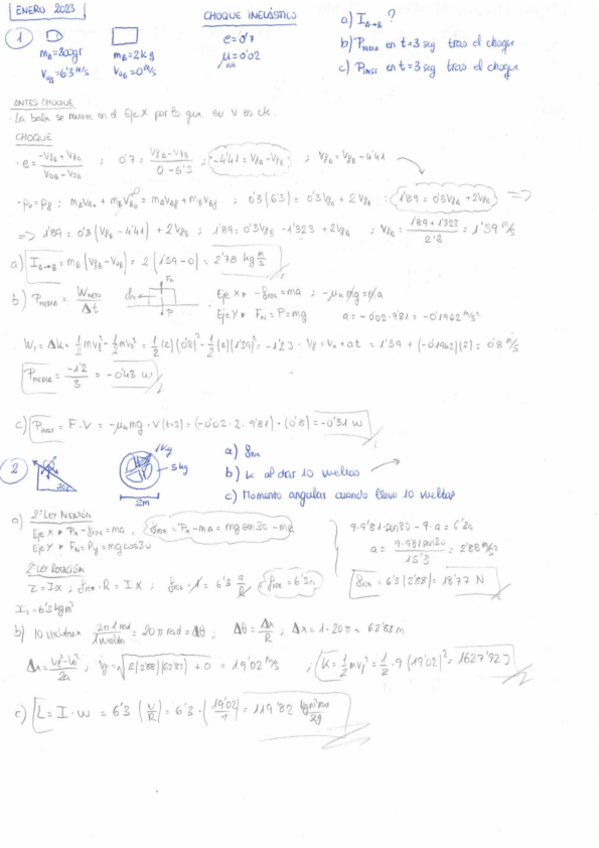 ENERO 2023
CHOQUE INELÁSTICO
a) I A→B ?
1
e=0'7
b) P MEDIA en t=3 seg tras el choque
m_A=300gr m_B=2kg
μ=0'02
c) P INST en t=3 seg tras el choque
V_0A=6'3 m/s V_0B=0 m/s
ANTES CHOQUE
· La bala se mueve en el Eje X por lo que su v es cte.
CHOQUE
· e = (-V_fA+V_fB)/(V_0A-V_0B) ; 0'7 = (V_fA-V_fB)/(0-6'3) ; -4'41 = V_fA-V_fB ; V_fA = V_fB-4'41
· p_0=p_f ; m_A V_0A + m_B V_0B = m_A V_Af + m_B V_Bf ; 0'3(6'3) = 0'3V_fA + 2V_fB ; 1'89 = 0'3V_fA + 2V_fB =>
=> 1'89 = 0'3(V_fB-4'41) + 2V_fB ; 1'89 = 0'3V_fB - 1'323 + 2V_fB ; V_fB = (1'89+1'323)/2'3 = 1'39 m/s
a) I A→B = m_B(V_fB-V_0B) = 2(1'39-0) = 2'78 kg m/s
b) P MEDIA = W/Δt
F_N
P
Eje X · -f_roz = ma ; -μ mg = ma
Eje Y · F_N = P = mg a = -0'02·9'81 = -0'1962 m/s²
· W = Δk = 1/2 mv_f² - 1/2 mv_0² = 1/2 (2)(0'8)² - 1/2 (2)(1'39)² = -1'2J · V_f = V_0 + at = 1'39 + (-0'1962)(3) = 0'8 m/s
P MEDIA = -1'2/3 = -0'43 W
c) P INST = F·V = -μ mg · v(t=3) = (-0'02·2·9'81)·(0'8) = -0'31 W
2
1kg
5kg
30
2m
a) f roz
b) K al dar 10 vueltas
c) Momento angular cuando lleva 10 vueltas
a) 2ª LEY NEWTON
Eje X · P_x - f_roz = ma , f_roz = P_x - ma = mg sen30 - ma
Eje Y · F_N = P_y = mg cos30
2ª LEY ROTACIÓN
τ = Iα ; f_roz·R = Iα ; f_roz·1 = 6'3 a/R ; f_roz = 6'3a
I_1 = 6'3 kg m²
9·9'81·sen30 - 9·a = 6'3a
a = 9·9'81 sen30/15'3 = 2'88 m/s²
f_roz = 6'3(2'88) = 18'77 N
b) 10 vueltas × 2π rad/1 vuelta = 20π rad = Δθ ; Δθ = Δx/R ; Δx = 1·20π = 62'83 m
Δx = (v_f²-v_0²)/2a ; v_f = √(2(2'88)(62'83)+0) = 19'02 m/s ; K = 1/2 mv_f² = 1/2 · 9(19'02)² = 1627'92 J
c) L = I·w = 6'3 (v/R) = 6'3·(19'02/1) = 119'82